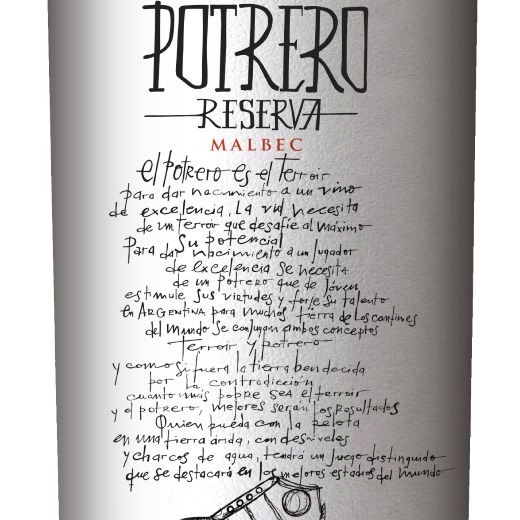 POTRERO
RESERVA
MALBEC
el potrero es el terroir
para dar nacimiento a un vino
de excelencia, la vid necesita
de un terroir que desafíe al máximo
su potencial
Para dar nacimiento a un jugador
de excelencia se necesita
de un potrero que de jóven
estimule sus virtudes y forje su talento
en ARGENTINA para muchos tierra de los confines
del mundo se conjugan ambos conceptos
terroir y potrero
y como si fuera la tierra bendecida
por la contradicción
cuanto más pobre sea el terroir
y el potrero, mejores serán los resultados
Quien pueda con la pelota
en una tierra árida, con desniveles
y charcos de agua, tendrá un juego distinguido
que se destacará en los mejores estadios del mundo